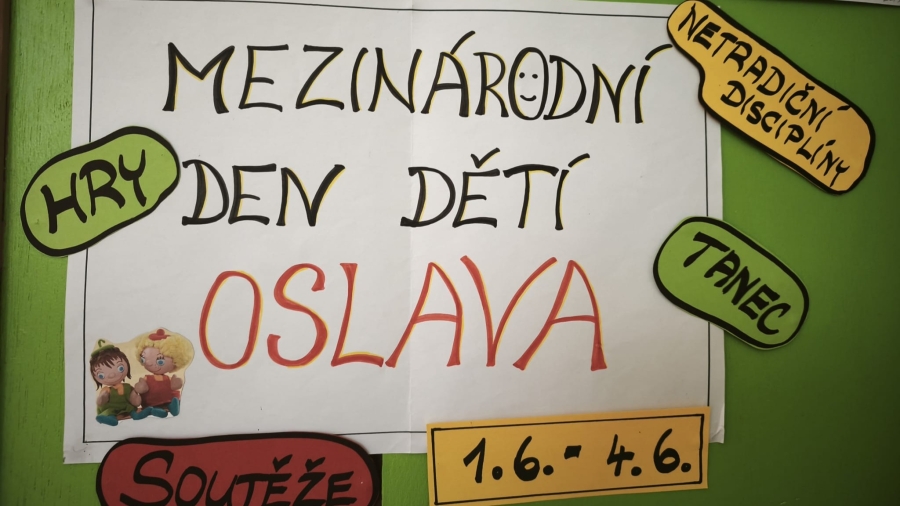 MEZINÁRODNÍ
DEN DĚTÍ
OSLAVA
HRY
NETRADIČNÍ
DISCIPLÍNY
TANEC
SOUTĚŽE
1.6.- 4.6.